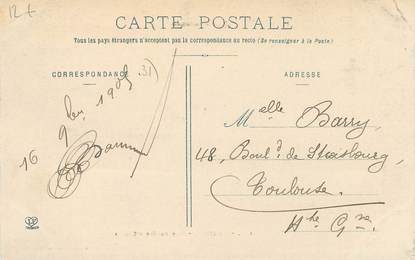 CARTE POSTALE
Tous les pays étrangers n'acceptent pas la correspondance au recto (Se renseigner à la Poste)
CORRESPONDANCE
ADRESSE
16 9bre 1905
Melle Barry
48, Bould de Strasbourg,
Toulouse.
Hte Gne